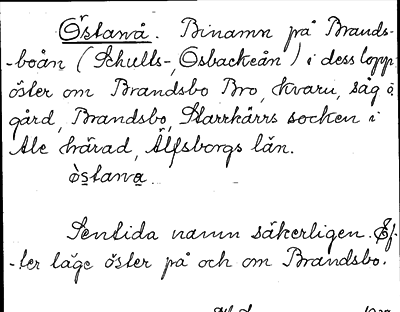 Östanå. Binamn på Brands-
-boån (Schults-, Osbackeån) i dess lopp
öster om Brandsbo Bro, kvarn, såg o
gård, Brandsbo, Starrkärrs socken i
Ale härad, Älfsborgs län.
òstana.
Sentida namn säkerligen. Ef-
-ter läge öster på och om Brandsbo.